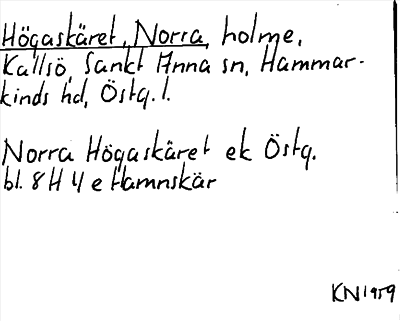 Högaskäret, Norra, holme,
Kallsö, Sankt Anna sn, Hammar-
kinds hd, Östg. l.
Norra Högaskäret ek Östg.
bl. 8 H 4 e Hamnskär
KN 1959